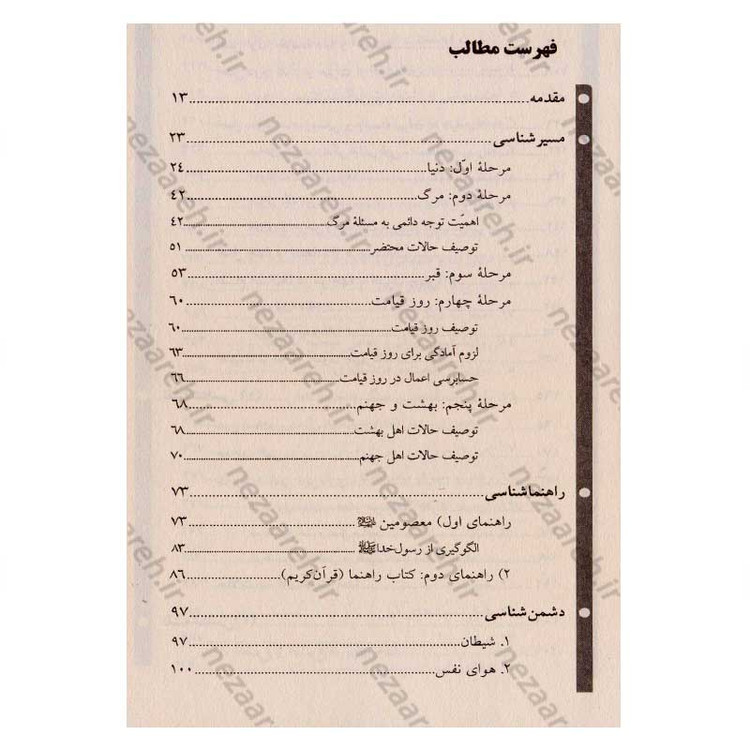 فهرست مطالب
مقدمه ........ ۱۳
مسیرشناسی ........ ۲۳
مرحلهٔ اوّل: دنیا ........ ۲۴
مرحلهٔ دوم: مرگ ........ ۴۲
اهمیّت توجه دائمی به مسئلهٔ مرگ ........ ۴۲
توصیف حالات محتضر ........ ۵۱
مرحلهٔ سوم: قبر ........ ۵۳
مرحلهٔ چهارم: روز قیامت ........ ۶۰
توصیف روز قیامت ........ ۶۰
لزوم آمادگی برای روز قیامت ........ ۶۳
حسابرسی اعمال در روز قیامت ........ ۶۶
مرحلهٔ پنجم: بهشت و جهنم ........ ۶۸
توصیف حالات اهل بهشت ........ ۶۸
توصیف حالات اهل جهنم ........ ۷۰
راهنماشناسی ........ ۷۳
راهنمای اول) معصومین ........ ۷۳
الگوگیری از رسول‌خدا ﷺ ........ ۸۳
۲) راهنمای دوم: کتاب راهنما (قرآن‌کریم) ........ ۸۶
دشمن‌شناسی ........ ۹۷
۱. شیطان ........ ۹۷
۲. هوای نفس ........ ۱۰۰
nezaareh.ir